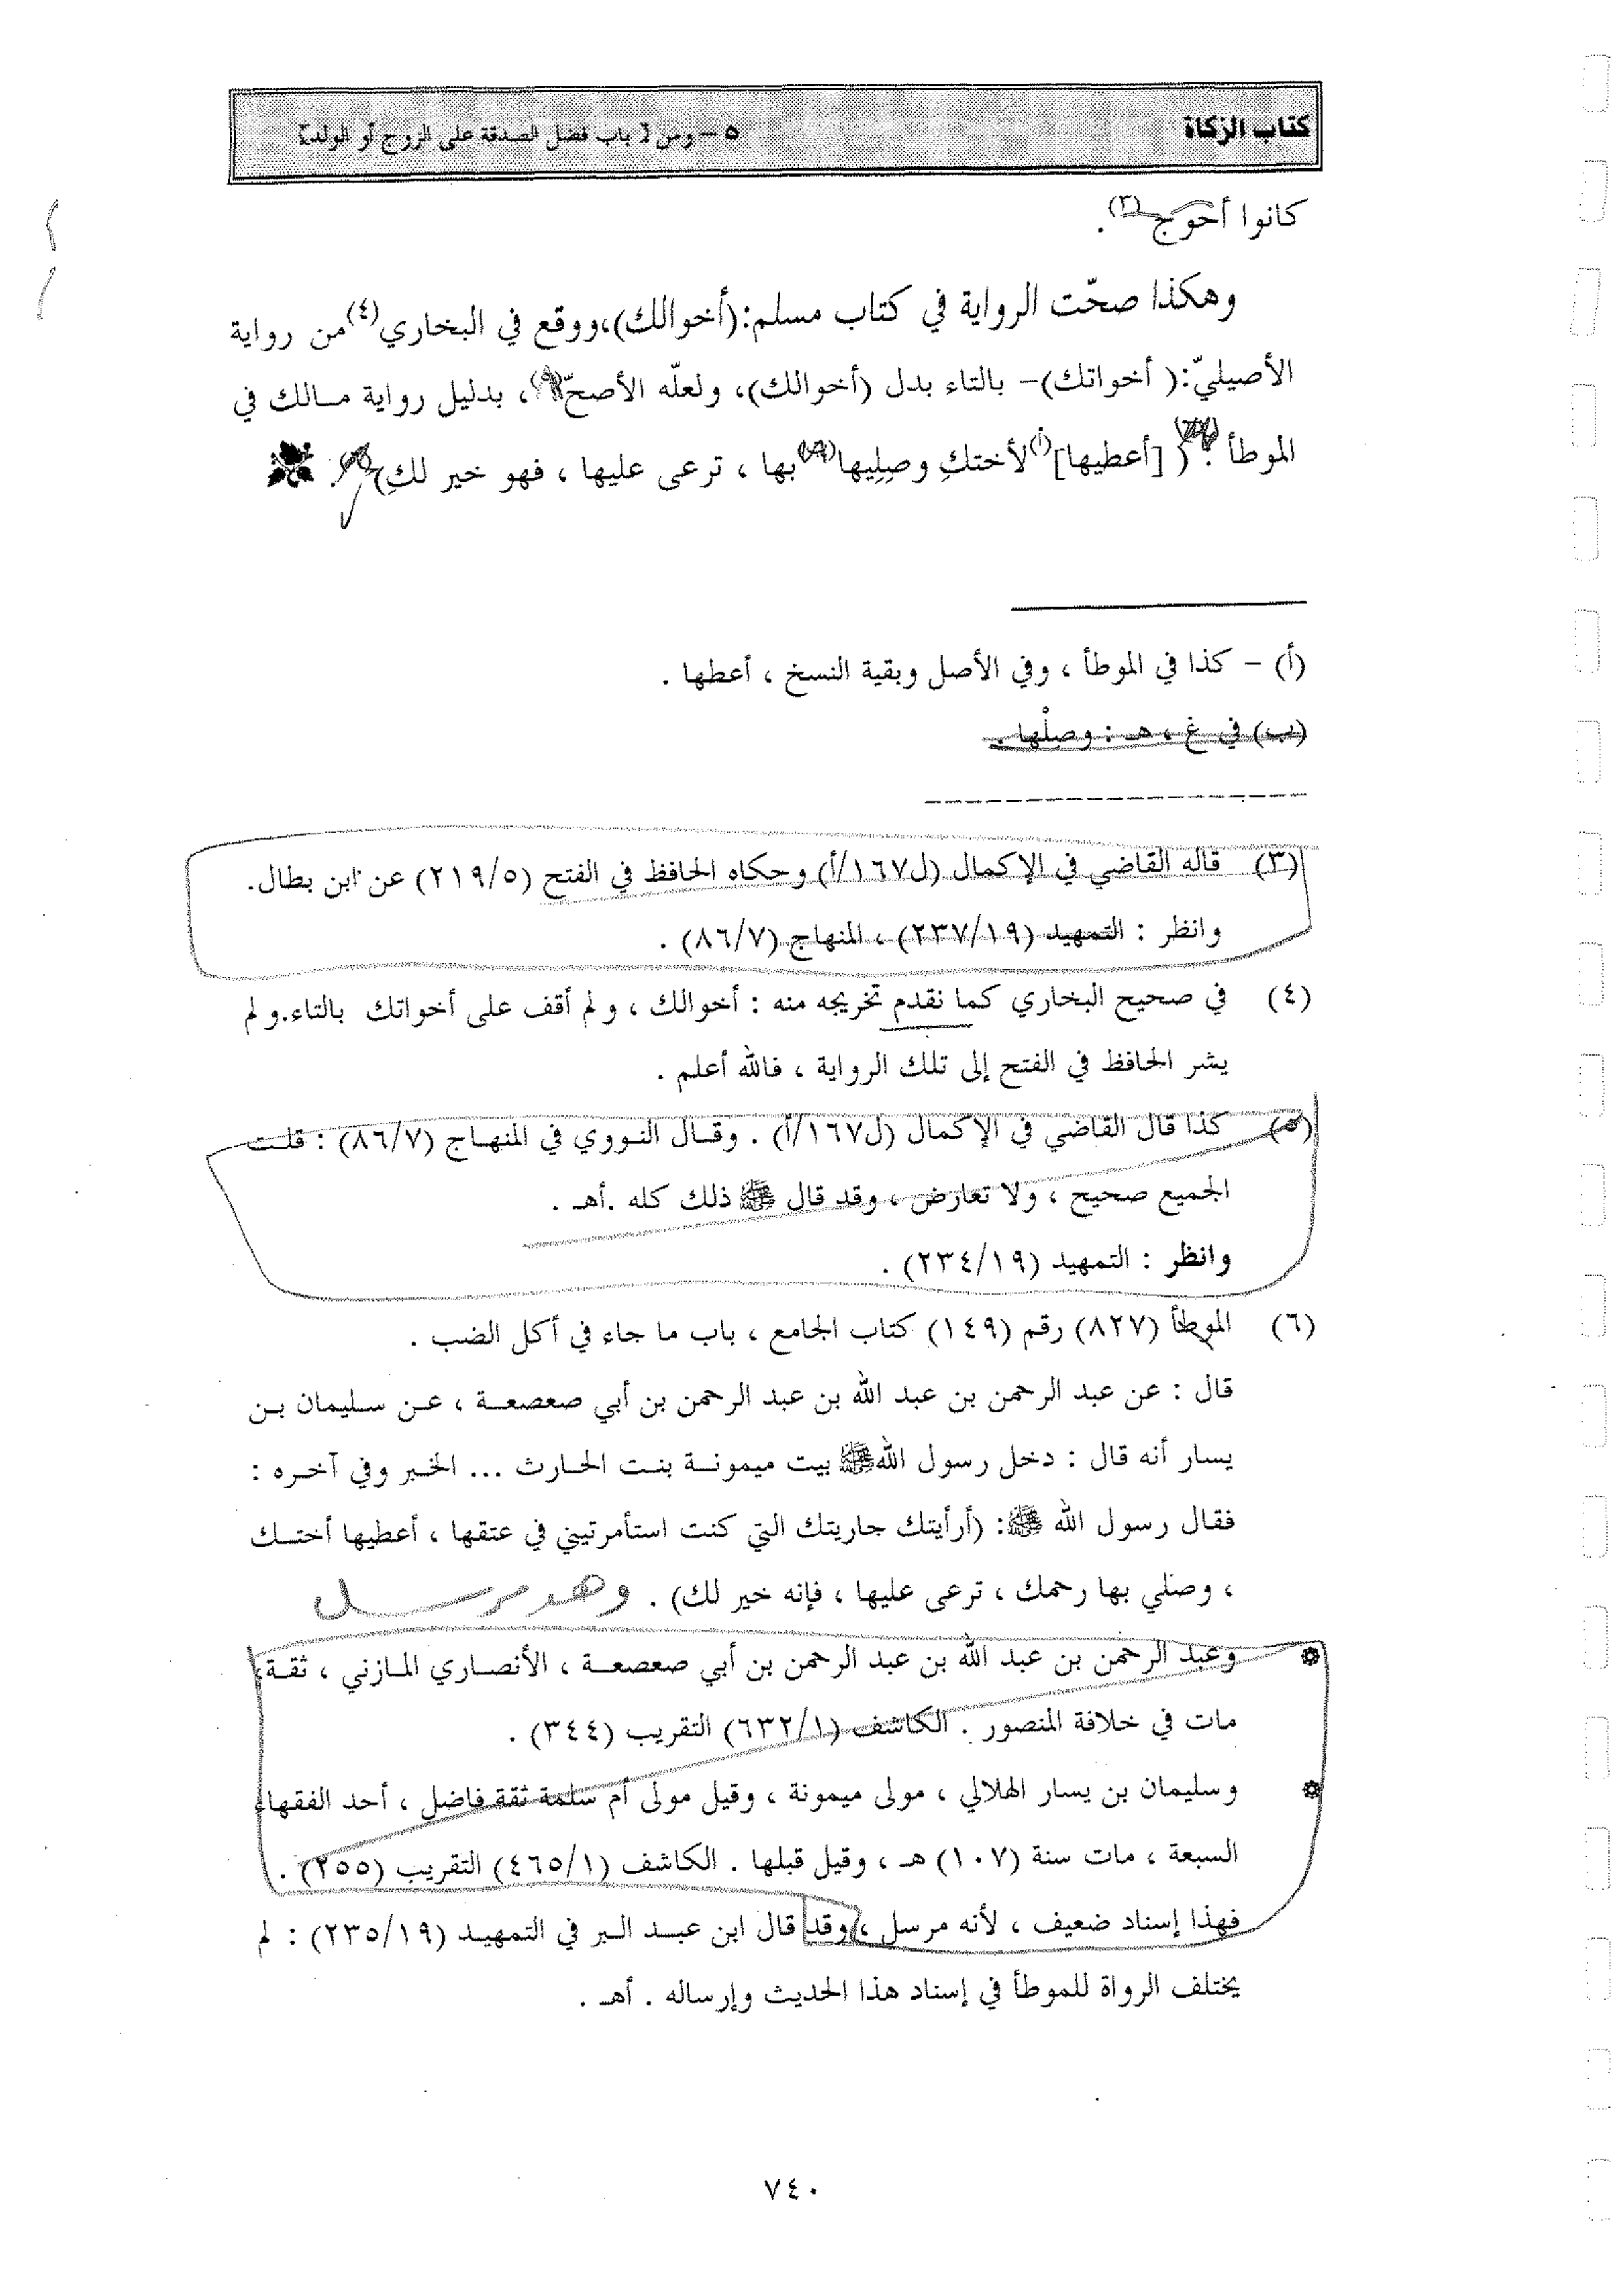 كتاب الزكاة
٥ – ومن [ باب فضل الصدقة على الزوج أو الولد]
كانوا أحوج(٣).
وهكذا صحّت الرواية في كتاب مسلم:(أخوالك)،ووقع في البخاري(٤)من رواية
الأصيليّ:( أخواتك)– بالتاء بدل (أخوالك)، ولعلّه الأصحّ ، بدليل رواية مالك في
الموطأ : ( [أعطيها](أ)لأختكِ وصِلِيها بها ، ترعى عليها ، فهو خير لكِ) .
(أ) – كذا في الموطأ ، وفي الأصل وبقية النسخ ، أعطها .
(ب) في غ ، هـ : وصِلْها .
(٣) قاله القاضي في الإكمال (ل١٦٧/أ) وحكاه الحافظ في الفتح (٢١٩/٥) عن ابن بطال.
وانظر : التمهيد (٢٣٧/١٩) ، المنهاج (٨٦/٧) .
(٤) في صحيح البخاري كما نقدم تخريجه منه : أخوالك ، و لم أقف على أخواتك بالتاء.و لم
يشر الحافظ في الفتح إلى تلك الرواية ، فالله أعلم .
(٥) كذا قال القاضي في الإكمال (ل١٦٧/أ) . وقال النووي في المنهاج (٨٦/٧) : قلت
الجميع صحيح ، ولا تعارض ، وقد قال ﷺ ذلك كله .أهـ .
وانظر : التمهيد (٢٣٤/١٩) .
(٦) الموطأ (٨٢٧) رقم (١٤٩) كتاب الجامع ، باب ما جاء في أكل الضب .
قال : عن عبد الرحمن بن عبد الله بن عبد الرحمن بن أبي صعصعة ، عن سليمان بن
يسار أنه قال : دخل رسول الله ﷺ بيت ميمونة بنت الحارث ... الخبر وفي آخره :
فقال رسول الله ﷺ: (أرأيتك جاريتك التي كنت استأمرتيني في عتقها ، أعطيها أختك
، وصلي بها رحمك ، ترعى عليها ، فإنه خير لك) . وهو مرسل
وعبد الرحمن بن عبد الله بن عبد الرحمن بن أبي صعصعة ، الأنصاري المازني ، ثقة،
مات في خلافة المنصور . الكاشف (٦٣٢/١) التقريب (٣٤٤) .
وسليمان بن يسار الهلالي ، مولى ميمونة ، وقيل مولى أم سلمة ثقة فاضل ، أحد الفقهاء
السبعة ، مات سنة (١٠٧) هـ ، وقيل قبلها . الكاشف (٤٦٥/١) التقريب (٢٥٥) .
فهذا إسناد ضعيف ، لأنه مرسل ، وقد قال ابن عبد البر في التمهيد (٢٣٥/١٩) : لم
يختلف الرواة للموطأ في إسناد هذا الحديث وإرساله . أهـ .
٧٤٠